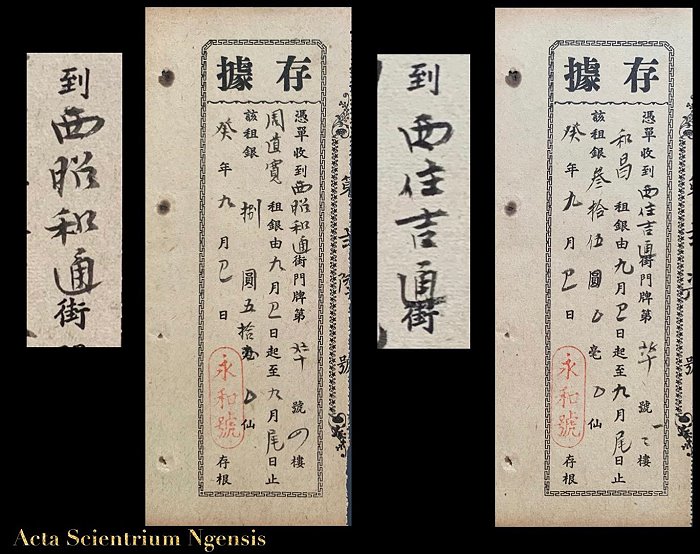 到西昭和通街
存據
憑單收到西昭和通街門牌第 號四樓
周道賓 租銀由九月 日起至九月尾日止
該租銀 捌 圓五拾毫 仙
癸年九月 日 存根
永和號
到西住吉通街
存據
憑單收到西住吉通街門牌第 號 樓
和昌 租銀由九月 日起至九月尾日止
該租銀叁拾伍圓 毫 仙
癸年九月 日 存根
永和號
號
Acta Scientrium Ngensis